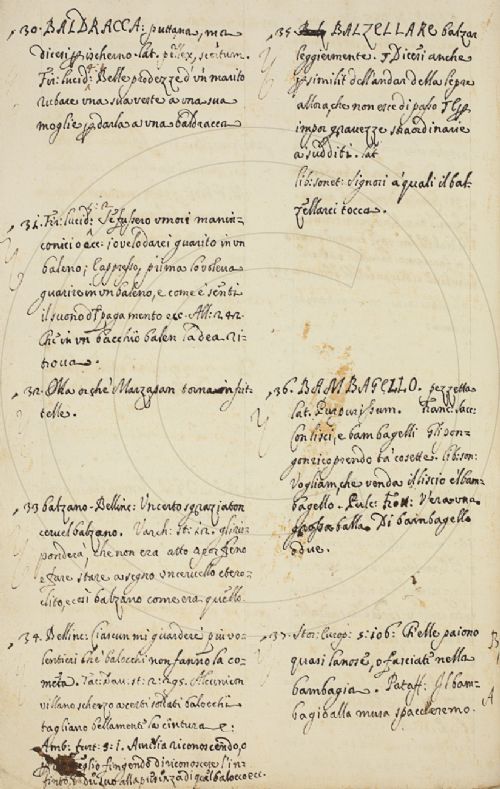 30. BALDRACCA: puttana, ma
dicesi p ischerno. lat. pellex, scortum.
Fir: lucid: Belle prodezze d'un marito
rubare una sua veste a una sua
moglie p darla a una baldracca
31. Fir: lucid: Se fussero umori manin-
conici o &c: io ve lo darei guarito in un
baleno; e appresso, prima lo voleva
guarire in un baleno, e come e' sentì
il suono di pagamento &c. All: 242.
Che in un bacchio balen la dea ri-
trova.
32. Olla orchè Marzapan torna in frit-
telle.
33 balzano. Bellinc: Un certo sgraziaton
cervel balzano. Varch: st:
pondera, che non era atto a por freno
e fare stare a segno un cervello etero-
clito, e così balzano come era quello.
34. Bellinc: Ciascun mi guarderà più vo-
lentieri che balocchi non fanno la co-
meta. Tac: Dav: st: 2. 295. Alcuni con
villano scherzo a certi soldati balocchi
tagliano bellamente la cintura e:
Amb: furt: 5. 1. Amilia riconoscendo, o
meglio fingendo di riconoscere l'in-
di qual balocco &c.
35. BALZELLARE balzar
leggiermente. Dicesi anche
p similit dell'andar della lepre
allora, che non esce di passo
impor gravezze straordinarie
a sudditi. lat
lib: sonet: Signori a' quali il bal-
zellarci tocca.
36. BAMBAGELLO. pezzetta
lat. Purpurissum. Franc: Sac:
Con lisci, e bambagelli
coprendo ta' cosette. lib: son:
Vogliam, che venda il liscio e'l bam-
bagello. Vera una
grossa balla Di bambagello
due.
37. Stor: Europ: 5: 106: Pelle paiono
quasi lanose, o fasciate nella
bambagia. Pataff: Il bam-
bagi dalla musa spacceremo.
B
A